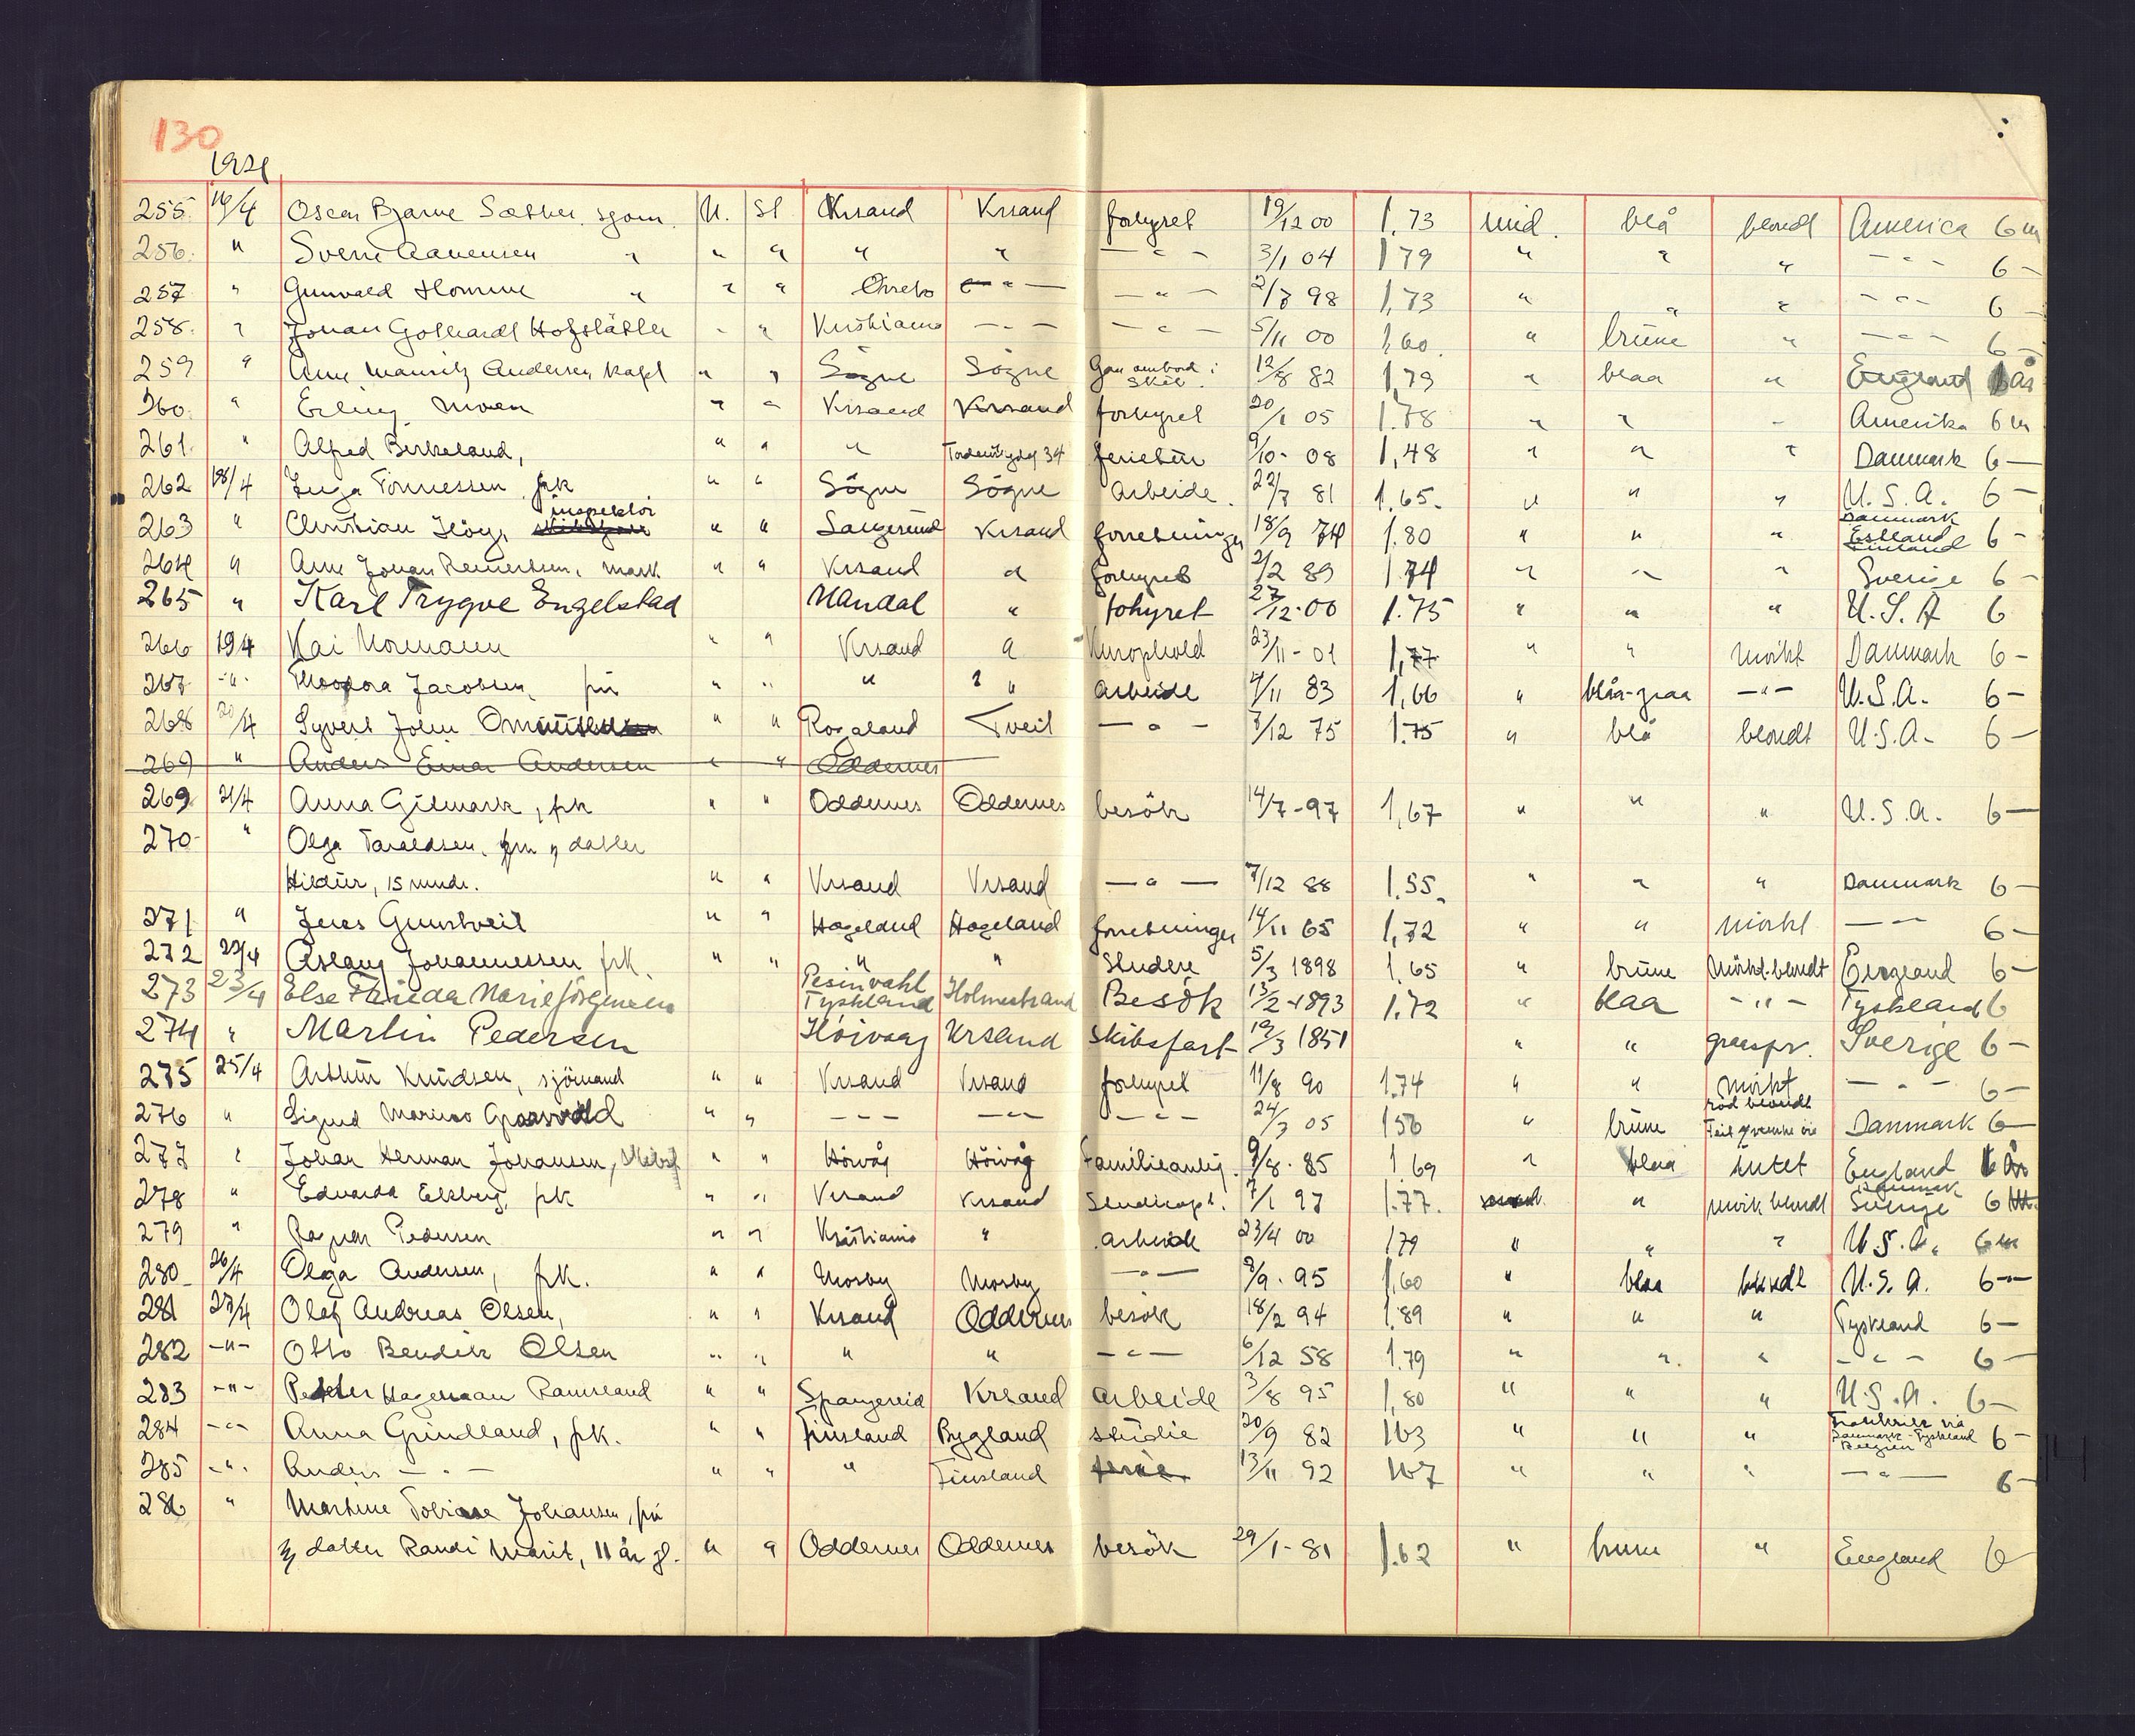 130
1921
255. 16/4 Oscar Bjarne Sæther sjøm. N. St Krsand Krsand forhyret 19/12 00 1.73 mid. blå blondt America 6 m
256. " Sverre Aanensen " " " " " — " — 3/1 04 1 79 " " " — " — 6 —
257 " Gunvald Homme " " " — " — — " — 2/7 98 1,73 " " " — " — 6 —
258. " Johan Gothardt Hofslätter " " Kristiania — " — — " — 5/11 00 1,60. " brune " — " — 6 —
259 " Arne Mauritz Andersen kapt " " Søgne Søgne Gaa ombord i skib. 12/8 82 1,79 " blaa " England år
260. " Erling Moen " " Krsand Krsand forhyret 20/1 05 1.78 " " " Amerika 6 m
261. " Alfred Birkeland, " " " 34 ferietur 9/10 - 08 1,48 " " " Danmark 6 —
262 18/4 Inga Tönnessen frk " " Sögne Sögne Arbeide. 22/7 81 1.65. " " " U.S.A. 6 —
263 " Christian Höy, inspektör " " Langesund Krsand forretninger 18/9 74 1.80 " " " Danmark Estland Finland 6 —
264 " Arne Johan Reinertsen, mask. " " Krsand " forhyret 2/2 89 1.74 " " " Sverige 6 —
265 " Karl Trygve Engelstad Mandal " fohyret 27/12-00 1.75 " " " U.S.A 6
266 19/4 Kai Normann " " Krsand " Kurophold 23/11 - 01 1,77 " " mörkt Danmark 6 —
267 - " - Theodora Jacobsen, fru " " " " Arbeide 4/11 83 1,66 " blåa-graa — " — U.S.A. 6 —
268 20/4 Syvert John Omundsen " " Rogaland Tveit — " — 7/12 75 1.75 " blå blondt U.S.A. 6 —
269 " Anders Einar Andersen " " Oddernes
269 21/4 Anna Gilmark, frk " " Oddernes Oddernes besök 14/7 - 97 1,67 " " " U.S.A. 6 —
270 " Olga Taraldsen, fru og datter
Hildur, 15 mndr. " " Krsand Krsand — " — 7/12 88 1.55. " " " Danmark 6 —
271 " Jens Gunstveit " " Hægeland Hægeland forretninger 14/11 65 1,72 " " mörkt — " — 6 —
272 22/4 Aslaug Johannessen frk. " " " " Studere 5/3 1898 1,65 " brune Mörkt-blondt England 6 —
273 23/4 Else Frieda Marie Jörgensen Tyskland Holmestrand Besök 13/2 - 1893 1.72 " blaa — " — Tyskland 6
274 " Martin Pedersen Höivaag Krsand Skibsfart 19/3 1851 " " graaspr. Sverige 6 —
275 25/4 Arthur Knudsen, sjömand " " Krsand Krsand forhyret 11/8 90 1.74 " " mörkt — " — 6 —
276 " Sigurd Marino Graasvold " " — " — — " — — " — 24/3 05 156 " brune röd blondt Danmark 6 —
277 " Johan Herman Johansen, " " Hövåg Höivåg Familieanlig. 9/8 - 85 1.69 " blaa intet England år
278 " Edvarda Elsberg, frk " " Krsand Krsand Studieoph. 7/1 97 1.77. " mörk blondt Danmark Sverige 6
279 " Ragnar Pedersen " " Kristiania " arbeide 23/4 00 179 " " " U.S.A. 6 m
280 26/4 Olga Andersen, frk. " " Mosby Mosby — " — 8/9 - 95 1,60 " blaa blondt U.S.A. 6 —
281 27/4 Olaf Andreas Olsen, " " Krsand Oddernes besök 18/2 94 1.89 " " " Tyskland 6 —
282 — " — Otto Bendik Olsen " " " " — " — 6/12 58 1.79 " " " — " — 6 —
283 — " — Petter Hageman Ramsland " " Spangereid Krsand arbeide 3/8 95 1,80 " " " U.S.A. 6 —
284 — " — Anna Grindland, frk. " " Finsland Bygland studie 20/9 82 163 " " " Frankrike via Danmark - Tyskland Belgien 6 —
285 — " — Anders — " — " " " Finsland 13/11 92 167 " " " — " — 6 —
286 " Martine Tobiase Johansen, fru
og datter Randi Marit, 11 år gl. " " Oddernes Oddernes besök 29/1 - 81 1.62 " brune " England 6